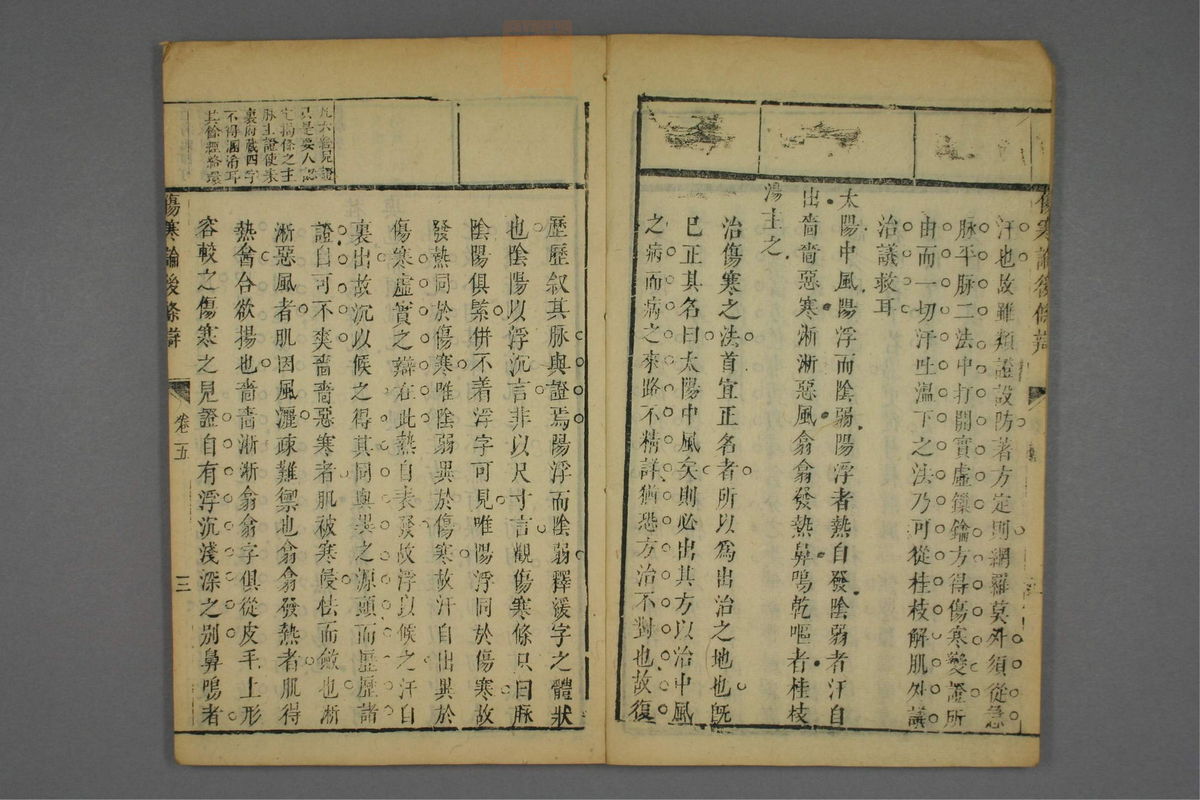 傷寒論後條辯
汗也故雖類證設防著方定則網羅莫外須從急
脉平脉二法中打開實虛鏁鑰方得傷寒變證所
由而一切汗吐溫下之法乃可從桂枝解肌外議
治議救耳
太陽中風陽浮而陰弱陽浮者熱自發陰弱者汗自
出嗇嗇惡寒淅淅惡風翕翕發熱鼻鳴乾嘔者桂枝
湯主之
治傷寒之法首宜正名者所以爲出治之地也旣
已正其名曰太陽中風矣則必出其方以治中風
之病而病之來路不精詳猶恐方治不對也故復
歷歷叙其脉與證焉陽浮而陰弱釋緩字之體狀
也陰陽以浮沉言非以尺寸言觀傷寒條只曰脉
陰陽俱緊併不着浮字可見唯陽浮同於傷寒故
發熱同於傷寒唯陰弱異於傷寒故汗自出異於
傷寒虛實之辯在此熱自表發故浮以候之汗自
裏出故沉以候之得其同與異之源頭而歷歷諸
證自可不爽嗇嗇惡寒者肌被寒侵怯而斂也淅
淅惡風者肌因風灑疎難禦也翕翕發熱者肌得
熱會合欲揚也嗇嗇淅淅翕翕字俱從皮毛上形
容較之傷寒之見證自有浮沉淺深之别鼻鳴者
凡六經見證
只是要人認
定揭條之主
脉主證使表
裏府藏四字
不得溷淆耳
其餘經絡
傷寒論後條辯
卷五
三